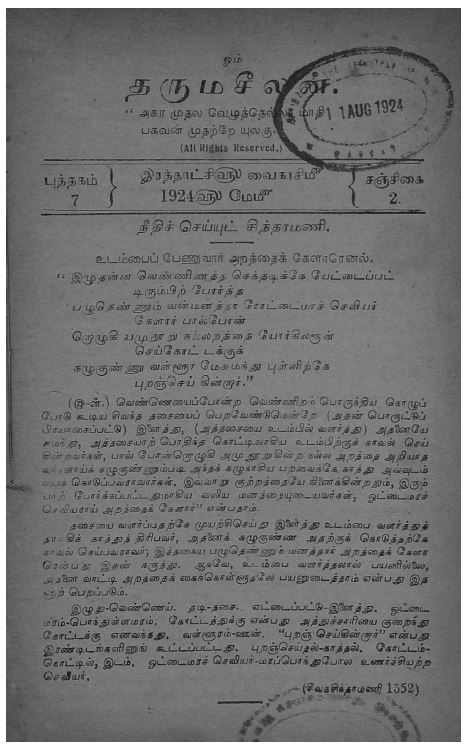 ஓம்
தருமசீலன்.
"அகர முதல வெழுத்தெல் மாதி
பகவன் முதற்றே யுலகு.
(All Rights Reserved.)
1 1 AUG 1924
புத்தகம் 7
இரத்தாட்சி௵ வைகாசி௴
1924௵ மே௴
சஞ்சிகை 2.
நீதிச் செய்யுட் சிந்தாமணி.
உடம்பைப் பேணுவார் அறத்தைக் கேளாரெனல்.
"இழுதன்ன வெண்ணிணத்த செந்தடிக்கே யேட்டைப்பட்
டிரும்பிற் போர்த்த
பழுதெண்ணும் வன்மனத்தா ரோட்டைமரச் செவியர்
கேளார் பால்போன்
றொழுகி யமுதூறு நல்லறத்தை யோர்கிலரூன்
செய்கோட் டக்குக்
கழுகுண்ணு வள்ளூரம் மேசுமந்து புள்ளிற்கே
புறஞ்செய் கின்றார்."
(இ-ள்.) வெண்ணெயைப்போன்ற வெண்ணிறம் பொருந்திய கொழுப்
போடு கூடிய சிவந்த தசையைப் பெறவேண்டுமென்றே (அதன் பொருட்டுப்
பிரயாசைப்பட்டு) இளைத்து, (அத்தசையை உடம்பில் வளர்த்து) அதனையே
சுமந்து, அத்தசையாற் பொதிந்த கொட்டிலாகிய உடம்பிற்குக் காவல் செய்
கின்றவர்கள், பால் போன்றொழுகி அமுதூறுகின்ற நல்ல அறத்தை அறியாத
கழுகுண்ணும்படி அந்தக் கழுகாகிய பறவைக்கே காத்து அவ்வுடம்
பைக் கொடுப்பவராவார்கள். இவ்வாறு குற்றத்தையே நினைக்கின்றதும், இரும்
பாற் போர்க்கப்பட்டதுமாகிய வலிய மனத்தையுடையவர்கள், ஓட்டைமரச்
செவியராய் அறத்தைக் கேளார்" என்பதாம்.
தசையை வளர்ப்பதற்கே முயற்சிசெய்து இளைத்து உடம்பை வளர்த்துத்
தாங்கிக் காத்துத் திரிபவர், அதனைக் கழுகுண்ண அதற்குக் கொடுத்தற்கே
காவல் செய்பவராவர்; இத்தகைய பழுதெண்ணும் மனத்தார் அறத்தைக் கேளா
ரென்பது இதன் கருத்து. ஆகவே, உடம்பை வளர்த்தலால் பயனில்லை,
அதனை வாட்டி அறத்தைக் கைக்கொள்ளுதலே பயனுடைத்தாம் என்பது இத
னாற் பெறப்படும்.
இழுது-வெண்ணெய். தடி-தசை. ஏட்டைப்பட்டு-இளைத்து. ஓட்டை
மரம்-பொந்துள்ளமரம். கோட்டத்துக்கு என்பது அத்துச்சாரியை குறைந்து
கோட்டக்கு எனவந்தது. வள்ளூரம்-ஊன். "புறஞ் செய்கின்றார்" என்பது
இரண்டிடங்களினுங் கூட்டப்பட்டது. புறஞ்செய்தல்-காத்தல். கோட்டம்-
கொட்டில், இடம். ஓட்டைமரச் செவியர்-மரப்பொந்துபோல உணர்ச்சியற்ற
செவியர்.
(சீவகசிந்தாமணி 1552)